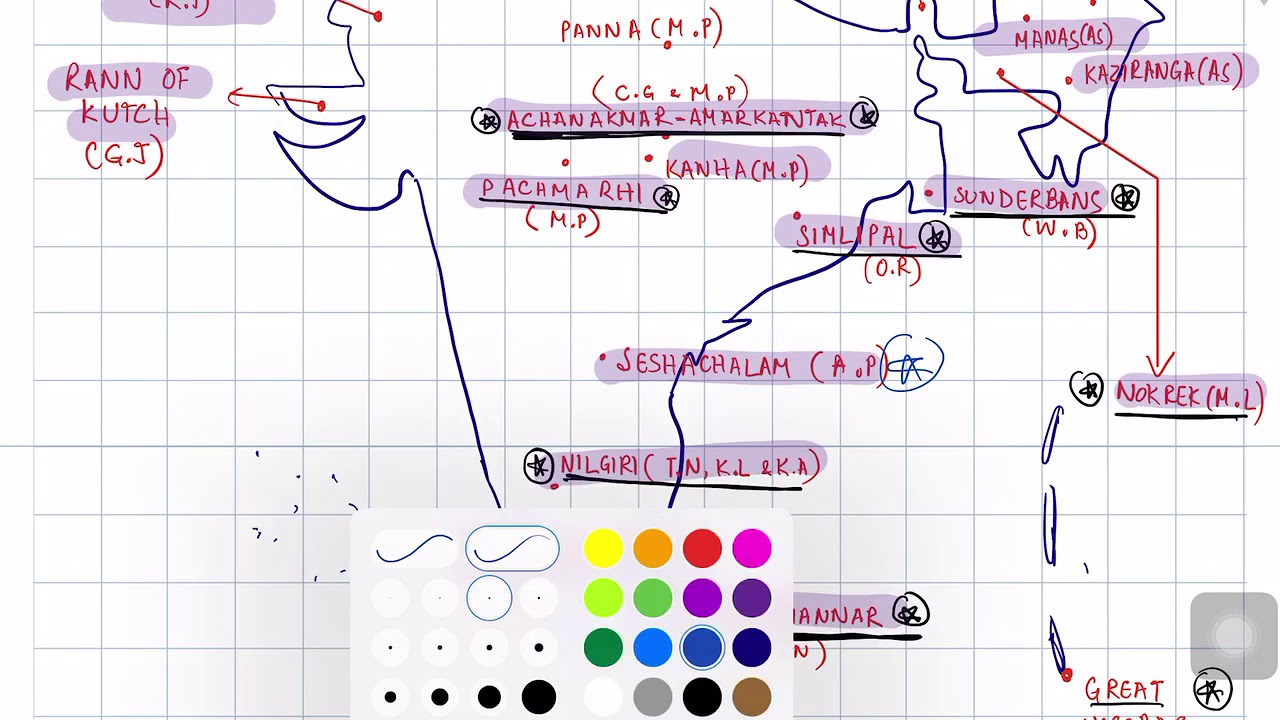 PANNA (M.P)
MANAS(AS)
KAZIRANGA(AS)
RANN OF
KUTCH
(G.J)
(C.G & M.P)
ACHANAKMAR-AMARKANTAK
KANHA(M.P)
PACHMARHI
(M.P)
SUNDERBANS
(W.B)
SIMLIPAL
(O.R)
SESHACHALAM (A.P)
NOKREK(M.L)
NILGIRI( T.N, K.L & K.A)
MANNAR
N)
GREAT